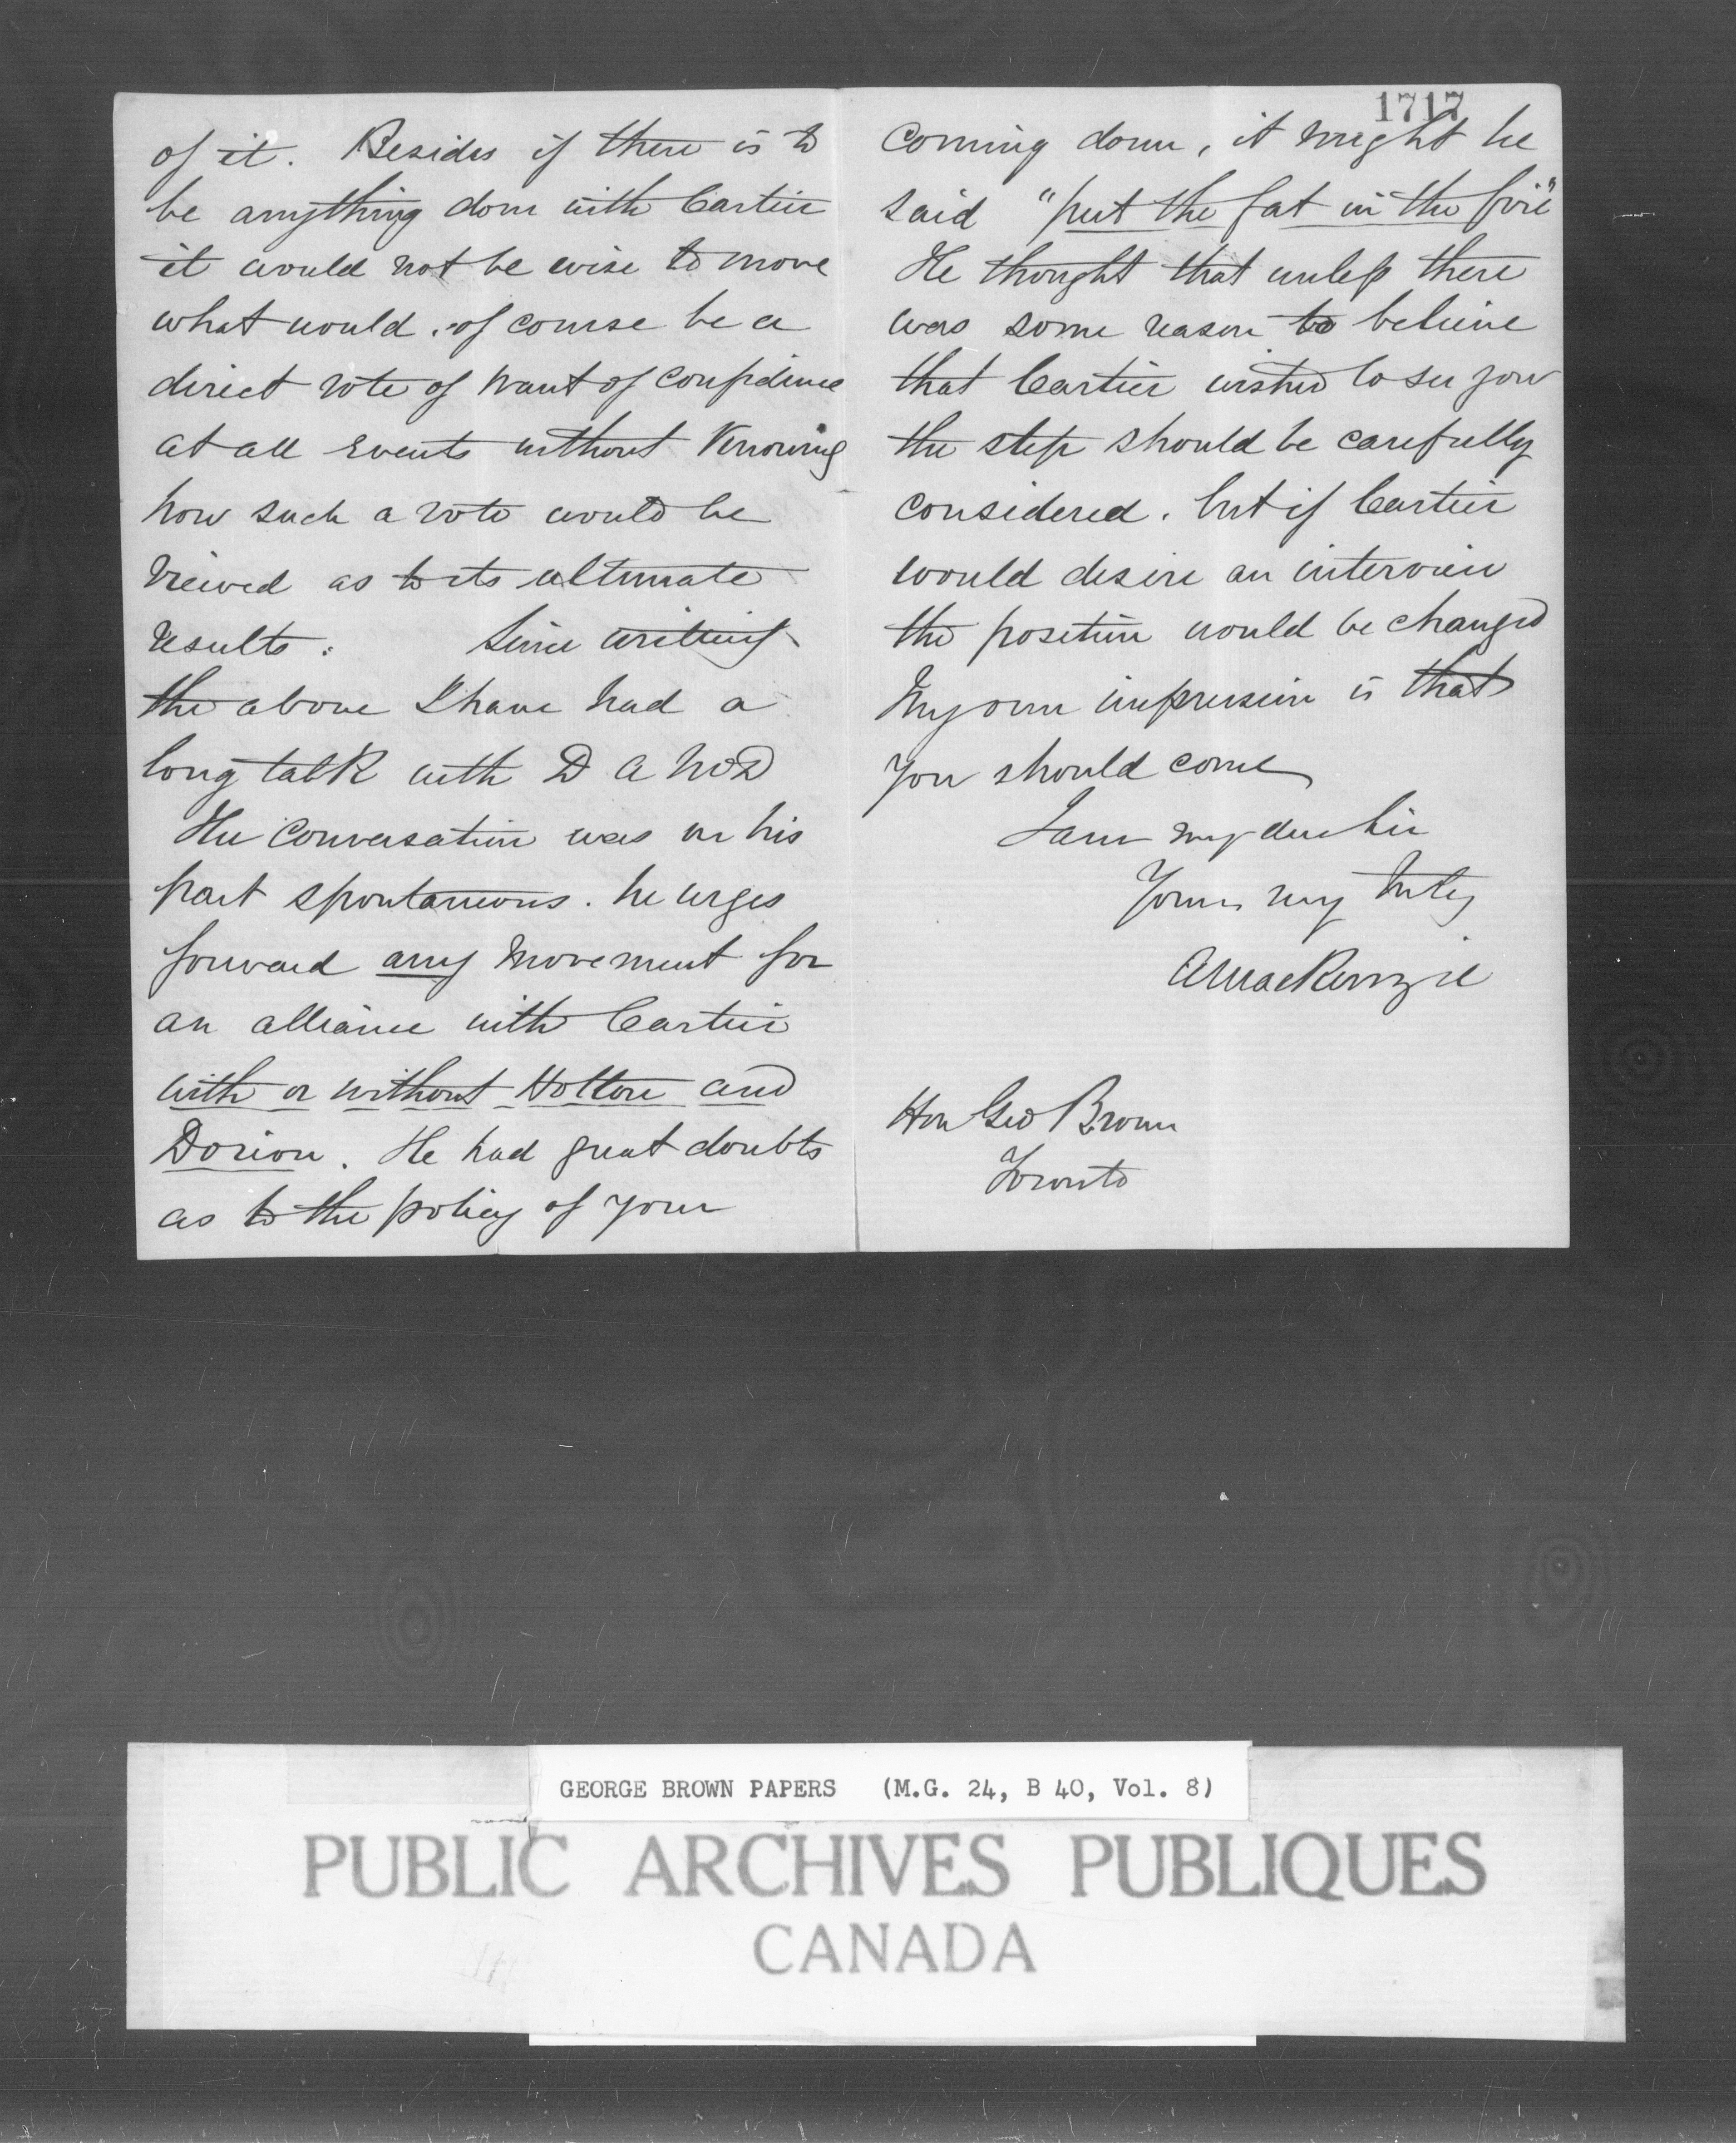 of it. Besides if there is to
be anything done with Cartier
it would not be wise to move
what would, of course be a
direct vote of want of confidence
at all events without knowing
how such a vote would be
viewed as to its ultimate
results. Since writing
the above I have had a
long talk with D A McD
The conversation was on his
part spontaneous. he urges
forward any movement for
an alliance with Cartier
with or without Holton and
Dorion. He had great doubts
as to the policy of your
1717
coming down, it might he
said "put the fat in the fire"
He thought that unless there
was some reason to believe
that Cartier wished to see you
the step should be carefully
considered. but if Cartier
would desire an interview
the position would be changed
My own impression is that
you should come
I am my dear Sir
Yours very truly
A Mackenzie
Hon Geo Brown
Toronto
GEORGE BROWN PAPERS (M.G. 24, B 40, Vol. 8)
PUBLIC ARCHIVES PUBLIQUES
CANADA